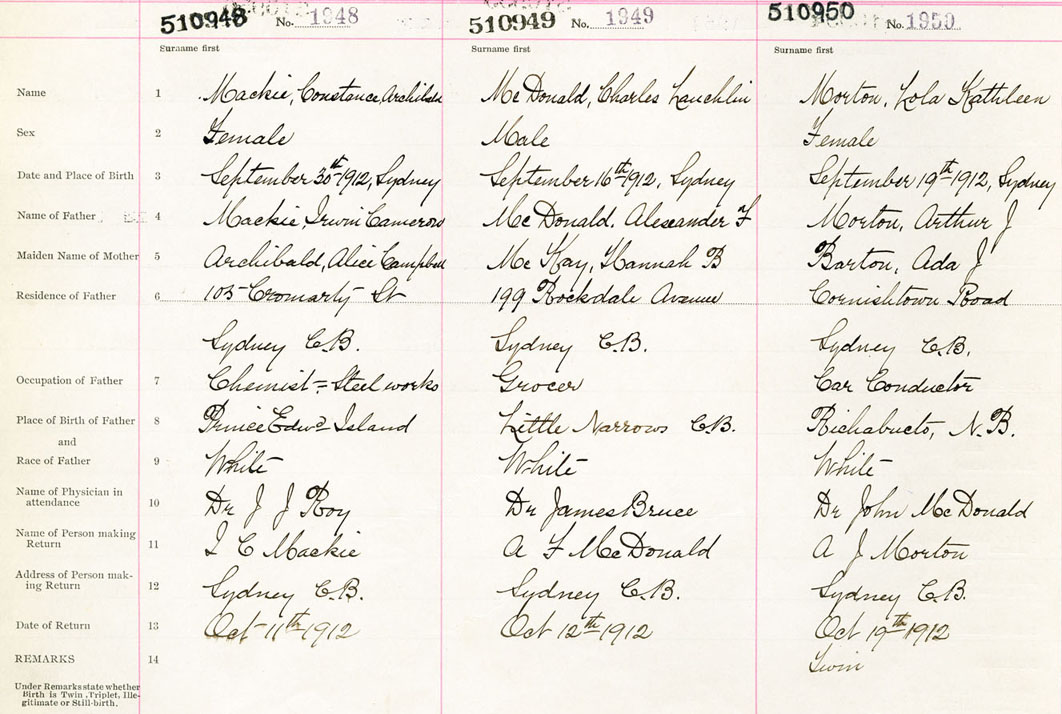 510948 No. 1948 510949 No. 1949 510950 No. 1950
Surname first Surname first Surname first
Name 1 Mackie, Constance, Archibald McDonald, Charles Lauchlin Morton, Lola Kathleen
Sex 2 Female Male Female
Date and Place of Birth 3 September 30th 1912, Sydney September 16th 1912, Sydney September 19th 1912, Sydney
Name of Father 4 Mackie, Irwin Cameron McDonald, Alexander F Morton, Arthur J
Maiden Name of Mother 5 Archibald, Alice Campbell McKay, Hannah B Barton, Ada J
Residence of Father 6 105 Cromarty St 199 Rockdale Avenue Cornishtown Road
Sydney C.B. Sydney C.B. Sydney C.B.
Occupation of Father 7 Chemist = Steel works Grocer Car Conductor
Place of Birth of Father 8 Prince Edwd Island Little Narrows C.B. Richabucto, N.B.
and
Race of Father 9 White White White
Name of Physician in
attendance 10 Dr J J Roy Dr James Bruce Dr John McDonald
Name of Person making
Return 11 I C Mackie A F McDonald A J Morton
Address of Person mak-
ing Return 12 Sydney C.B. Sydney C.B. Sydney C.B.
Date of Return 13 Oct 11th 1912 Oct 12th 1912 Oct 19th 1912
REMARKS 14 Twin
Under Remarks state whether
Birth is Twin, Triplet, Ille-
gitimate or Still-birth.